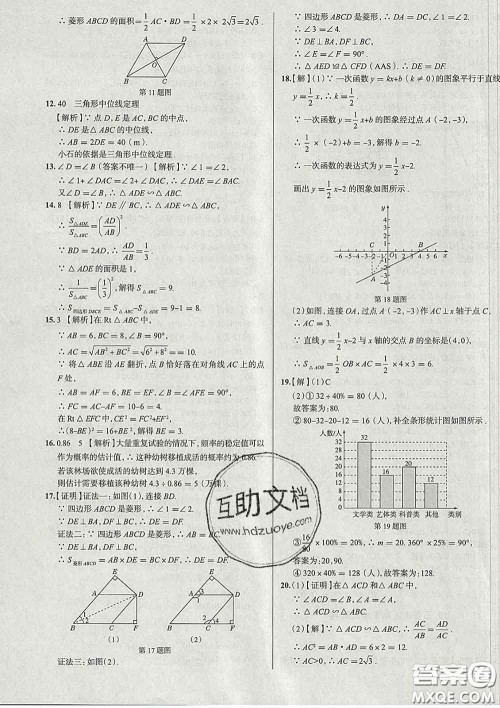 ∴ 菱形 ABCD 的面积=1/2 AC·BD=1/2×2×2√3=2√3.
A
D
O
B
C
第 11 题图
12. 40 三角形中位线定理
【解析】∵ 点 D,E 是 AC,BC 的中点,
∴ DE 是 △ABC 的中位线,
∴ AB=2DE=40(米)
小石的依据是三角形中位线定理.
13. ∠D=∠B(答案不唯一)【解析】∵ ∠1=∠2,
∴ ∠1+∠DAC=∠2+∠DAC,∴ ∠EAD=∠CAB.
又∠D=∠B,∴ △ADE∽△ABC.
14. 8 【解析】∵ DE∥BC,∴ △ADE∽△ABC.
∴ S△ADE/S△ABC=(AD/AB)²
∵ BD=2AD,∴ AD/AB=1/3.
∵ △ADE 的面积是1,
∴ 1/S△ABC=(1/3)²
∴ S四边形DBCE=S△ABC-S△ADE=9-1=8.
15. 3 【解析】在 Rt△ABC 中,
∵ AB=6,BC=8,∠B=90°,
∴ AC=√AB²+BC²=√6²+8²=10.
∵ 将△ABE 沿着 AE 翻折,
点 B 恰好落在对角线 AC 上的
点 F 处,
∴ AB=AF=6,BE=EF,∠AFE=∠B=90°,
∴ CF=AC-AF=10-6=4,
在 Rt△EFC 中,CE²=EF²+CF²,
∴(8-BE)²=16+BE²,∴ BE=3.
16. 0.86 5 【解析】大量重复试验的情况下,频率的稳定值可以
作为概率的估计值,∴ 这种幼树移植成活率的概率约为0.86.
若该林场欲使成活的幼树达到4.3万棵,
则估计需要移植该种幼树4.3÷0.86=5(万棵).
17. 【证明】证法一:如图(1),连接 BD.
∵ 四边形 ABCD
证法二:∵ 四边形 ABCD
∵ DE⊥BA,DF⊥
∴ S菱形ABCD
(1)
(2)
第 17 题图
证法三:如图(2).
∵ 四边形 ABCD 是菱形,∴ DA=DC,∠1=∠2,
∴ ∠3=∠4.
∵ DE⊥BA,DF⊥BC,
∴ △AED≌△CFD(AAS),∴ DE=DF.
18. 【解】(1)∵ 一次函数 y=kx+b(k≠0)的图象平行于直线
∴ k=1/2
∵ 一次函数 y=1/2x+b 的图象经过点 A(-2,-3),
∴ -3=1/2×(-2)+b,解得 b=-2.
∴ 一次函数的表达式为 y=1/2x-2.
画出 y=1/2x-2 的图象如图所示.
第 18 题图
(2)如图,连接 OA,过点 A(-2,-3)作 AC⊥x 轴于点 C,
∴ AC=3.
∵ 直线 y=1/2x-2 与 x 轴的交点 B 的坐标为(4,0),
∴ S△AOB=1/2OB×AC=1/2×4×3=6.
19. 【解】(1)C
(2)①32÷40%=80(人),
故答案为:80.
②80-32-20-12=16(人),补全条形统计图如图所示.
人数/人
32
16
20
12
文学类 艺体类 科普类 其他 类别
第 19 题图
③16/80×100%=20%,∴ m=20. 360°×25%=90°,
故答案为:20,90.
④320×40%=128(人),故答案为:128.
20. (1)【证明】在△ACD 和△ABC 中,
∵ ∠ACD=∠B,∠A=∠A,
∴ △ACD∽△ABC.
(2)【解】∵ △ACD∽△ABC,∴ AC/AB=AD/AC.
∵ AC>0,∴ AC=2√3.
互助文档
www.hdzuoye.com
答案圈
MXQE.COM